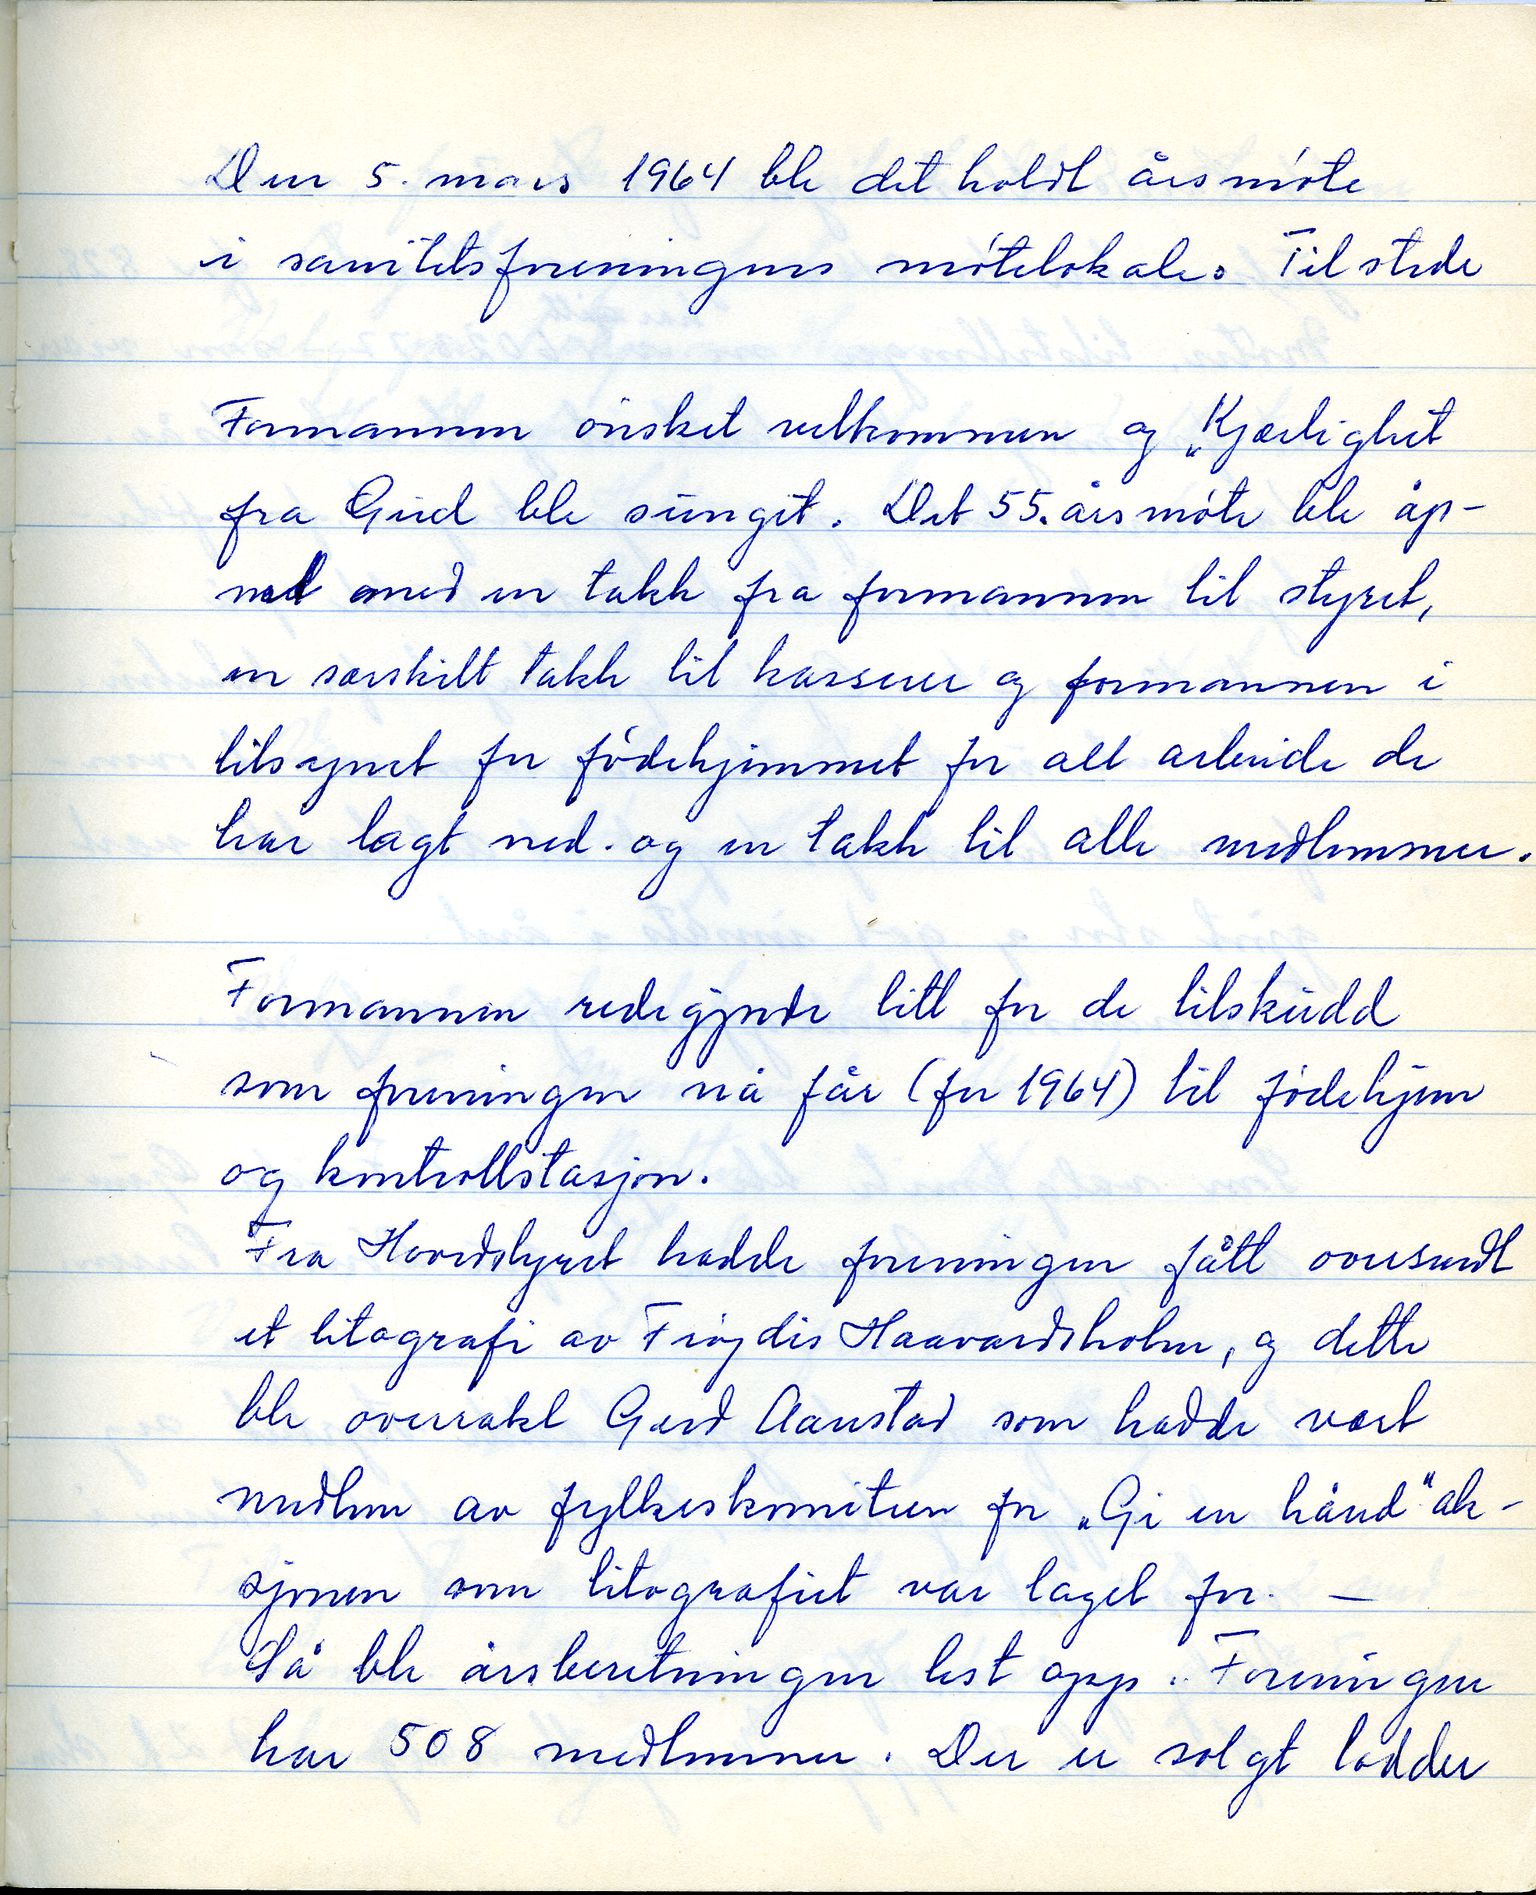 Den 5. mars 1964 ble det holdt årsmøte
i sanitetsforeningens møtelokale. Til stede
Formannen ønsket velkommen og „Kjærlighet
fra Gud ble sunget. Det 55. årsmøte ble åp-
net med en takk fra formannen til styret,
en særskilt takk til kasserer og formannen i
tilsynet for fødehjemmet for alt arbeide de
har lagt ned. og en takk til alle medlemmer.
Formannen redegjorde litt for de tilskudd
som foreningen nå får (for 1964) til fødehjem
og kontrollstasjon.
Fra Hovedstyret hadde foreningen fått oversendt
et litografi av Frøydis Haavardsholm, og dette
ble overrakt Gerd Aarstad som hadde vært
medlem av fylkeskomiteen for „Gi en hånd" ak-
sjonen som litografiet var laget for. —
Så ble årsberetningen lest opp. Foreningen
har 508 medlemmer. Der er solgt lodder